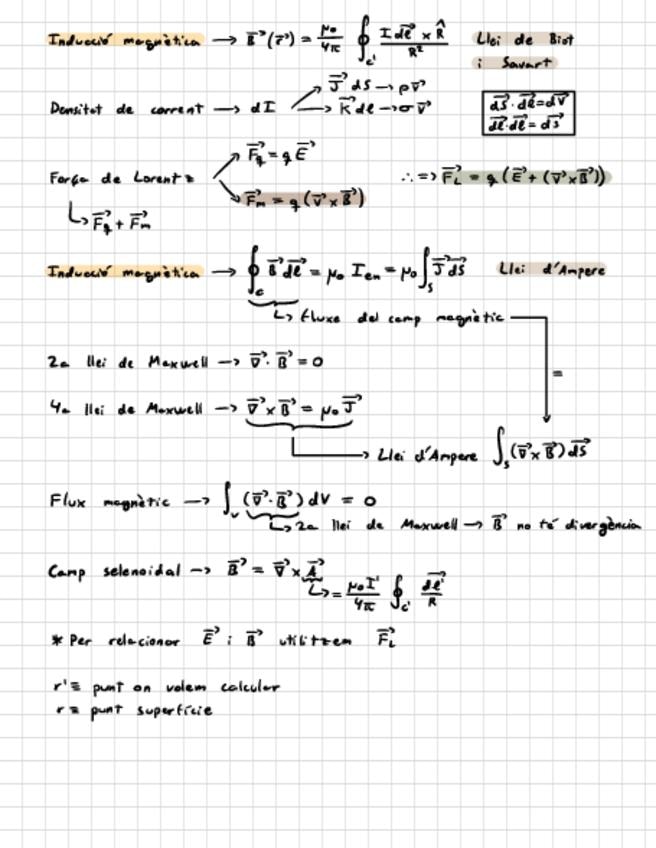 Inducció magnètica → B⃗(r⃗) = μ₀/4π ∮_c' I dl⃗' × R̂ / R² Llei de Biot
i Savart
J⃗ dS → ρv⃗
Densitat de corrent → dI → K⃗ dl → σv⃗
dS⃗ · dl⃗ = dV
dl⃗ · dl⃗ = dS⃗
F⃗q = q E⃗
Força de Lorentz ∴ => F⃗L = q (E⃗ + (v⃗ × B⃗))
F⃗m = q (v⃗ × B⃗)
↳ F⃗q + F⃗m
Inducció magnètica → ∮_c B⃗ dl⃗ = μ₀ Ien = μ₀ ∫_s J⃗ dS⃗ Llei d'Ampere
↳ Fluxe del camp magnètic
2a llei de Maxwell → ∇⃗ · B⃗ = 0
=
4a llei de Maxwell → ∇⃗ × B⃗ = μ₀ J⃗
→ Llei d'Ampere ∫_s (∇⃗ × B⃗) dS⃗
Flux magnètic → ∫_v (∇⃗ · B⃗) dV = 0
↳ 2a llei de Maxwell → B⃗ no té divergència
Camp selenoidal → B⃗ = ∇⃗ × A⃗
↳ = μ₀ I' / 4π ∮_c' dl⃗' / R
* Per relacionar E⃗ i B⃗ utilitzem F⃗L
r' ≡ punt on volem calcular
r ≡ punt superfície